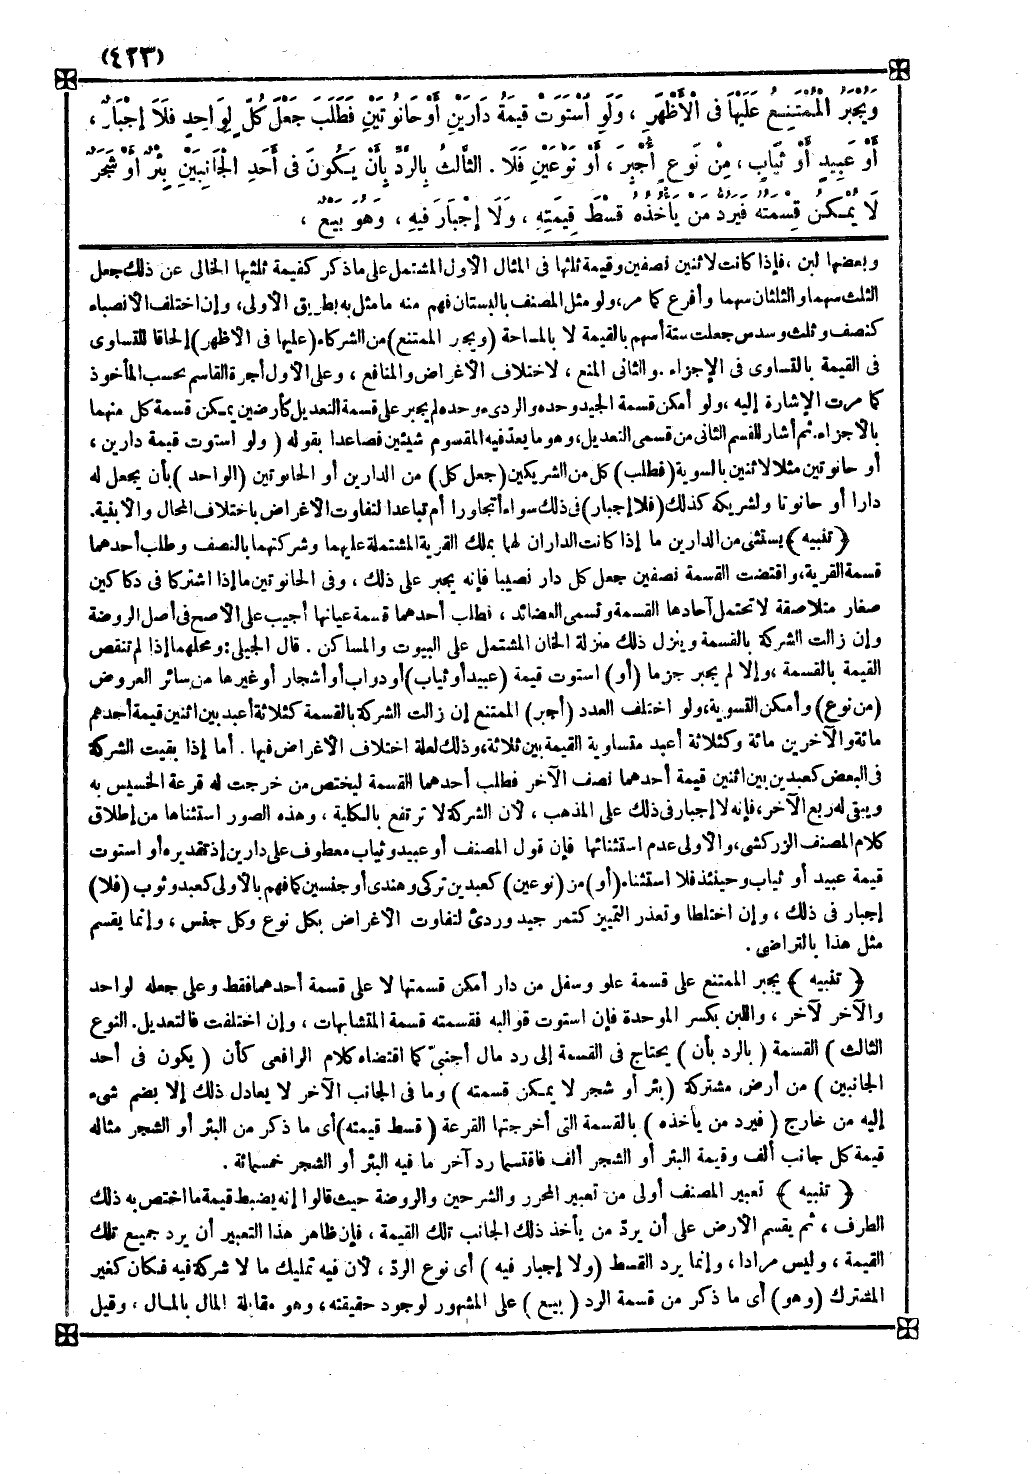 (٤٢٣)
وَيُجْبَرُ الْمُمْتَنِعُ عَلَيْهَا فِى الْأَظْهَرِ ، وَلَوِ اسْتَوَتْ قِيمَةُ دَارَيْنِ أَوْ حَانُوتَيْنِ فَطَلَبَ جَعْلَ كُلٍّ لِوَاحِدٍ فَلَا إِجْبَارَ ،
أَوْ عَبِيدٍ أَوْ ثِيَابٍ ، مِنْ نَوْعٍ أُجْبِرَ ، أَوْ نَوْعَيْنِ فَلَا . الثَّالِثُ بِالرَّدِّ بِأَنْ يَكُونَ فِى أَحَدِ الْجَانِبَيْنِ بِئْرٌ أَوْ شَجَرٌ
لَا يُمْكِنُ قِسْمَتُهُ فَيَرُدُّ مَنْ يَأْخُذُهُ قِسْطَ قِيمَتِهِ ، وَلَا إِجْبَارَ فِيهِ ، وَهُوَ بَيْعٌ ،
وبعضها لبن ، فإذا كانت لاثنين نصفين وقيمة ثلثها فى المثال الأول المشتمل على ما ذكر كقيمة ثلثيها الخالى عن ذلك جعل
الثلث سهما والثلثان سهما وأقرع كما مر ، ولو مثل المصنف بالبستان فهم منه ما مثل به بطريق الأولى ، وإن اختلف الأنصباء
كنصف وثلث وسدس جعلت ستة أسهم بالقيمة لا بالمساحة (ويجبر الممتنع) من الشركاء (عليها فى الأظهر) إلحاقا للتساوى
فى القيمة بالتساوى فى الإجزاء . والثانى المنع ، لاختلاف الأغراض والمنافع ، وعلى الأول أجرة القاسم بحسب المأخوذ
كما مرت الإشارة إليه ، ولو أمكن قسمة الجيد وحده والردىء وحده لم يجبر على قسمة التعديل كأرضين يمكن قسمة كل منهما
بالأجزاء . ثم أشار للقسم الثانى من قسمى التعديل ، وهو ما يعد فيه المقسوم شيئين فصاعدا بقوله ( ولو استوت قيمة دارين ،
أو حانوتين مثلا لاثنين بالسوية (فطلب) كل من الشريكين (جعل كل) من الدارين أو الحانوتين (الواحد ) بأن يجعل له
دارا أو حانوتا ولشريكه كذلك (فلا إجبار) فى ذلك سواء أتجاورا أم تباعدا لتفاوت الأغراض باختلاف المحال والأبنية .
﴿ تنبيه ﴾ يستثنى من الدارين ما إذا كانت الداران لهما بملك القرية المشتملة عليهما وشركتهما بالنصف وطلب أحدهما
قسمة القرية ، واقتضت القسمة نصفين جعل كل دار نصيبا فإنه يجبر على ذلك ، وفى الحانوتين ما إذا اشتركا فى دكاكين
صغار متلاصقة لا تحتمل آحادها القسمة وتسمى العضائد ، فطلب أحدهما قسمة عيانها أجيب على الأصح فى أصل الروضة
وإن زالت الشركة بالقسمة وينزل ذلك منزلة الخان المشتمل على البيوت والمساكن . قال الجيلى : ومحلهما إذا لم تنقص
القيمة بالقسمة ، وإلا لم يجبر جزما (أو) استوت قيمة (عبيد أو ثياب) أو دواب أو أشجار أو غيرها من سائر العروض
(من نوع) وأمكن التسوية ، ولو اختلف العدد (أجبر) الممتنع إن زالت الشركة بالقسمة كثلاثة أعبد بين اثنين قيمة أحدهم
مائة والآخرين مائة وكثلاثة أعبد متساوية القيمة بين ثلاثة ، وذلك لعلة اختلاف الأغراض فيها . أما إذا بقيت الشركة
فى البعض كعبدين بين اثنين قيمة أحدهما نصف الآخر فطلب أحدهما القسمة ليختص من خرجت له قرعة الخسيس به
ويبقى له ربع الآخر ، فإنه لا إجبار فى ذلك على المذهب ، لأن الشركة لا ترتفع بالكلية ، وهذه الصور استثناها من إطلاق
كلام المصنف الزركشى ، والأولى عدم استثنائها فإن قول المصنف أو عبيد وثياب معطوف على دارين إذ تقديره أو استوت
قيمة عبيد أو ثياب وحينئذ فلا استثناء (أو) من (نوعين) كعبدين تركى وهندى أو جنسين كما فهم بالأولى كعبد وثوب (فلا)
إجبار فى ذلك ، وإن اختلطا وتعذر التمييز كتمر جيد وردىء لتفاوت الأغراض بكل نوع وكل جنس ، وإنما يقسم
مثل هذا بالتراضى .
﴿ تنبيه ﴾ يجبر الممتنع على قسمة علو وسفل من دار أمكن قسمتها لا على قسمة أحدهما فقط وعلى جعله لواحد
والآخر لآخر ، واللبن بكسر الموحدة فإن استوت قوالبه فقسمته قسمة المتشابهات ، وإن اختلفت فالتعديل . النوع
الثالث ) القسمة ( بالرد بأن ) يحتاج فى القسمة إلى رد مال أجنبىّ كما اقتضاه كلام الرافعى كأن ( يكون فى أحد
الجانبين ) من أرض مشتركة (بئر أو شجر لا يمكن قسمته ) وما فى الجانب الآخر لا يعادل ذلك إلا بضم شىء
إليه من خارج ( فيرد من يأخذه ) بالقسمة التى أخرجتها القرعة ( قسط قيمته) أى ما ذكر من البئر أو الشجر مثاله
قيمة كل جانب ألف وقيمة البئر أو الشجر ألف فاقتسما رد آخر ما فيه البئر أو الشجر خمسمائة .
﴿ تنبيه ﴾ تعبير المصنف أولى من تعبير المحرر والشرحين والروضة حيث قالوا إنه يضبط قيمة ما اختص به ذلك
الطرف ، ثم يقسم الأرض على أن يردّ من يأخذ ذلك الجانب تلك القيمة ، فإن ظاهر هذا التعبير أن يرد جميع تلك
القيمة ، وليس مرادا ، وإنما يرد القسط (ولا إجبار فيه ) أى نوع الردّ ، لأن فيه تمليك ما لا شركة فيه فكان كغير
المشترك (وهو) أى ما ذكر من قسمة الرد ( بيع ) على المشهور لوجود حقيقته ، وهو مقابلة المال بالمال ، وقيل